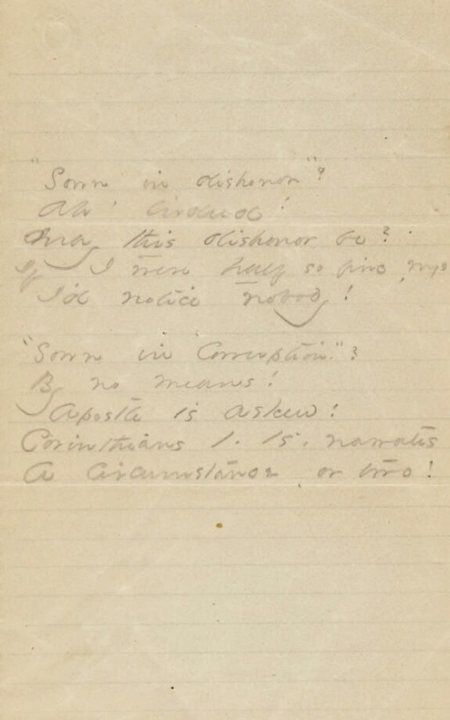 "Sown in dishonor"?
Ah! Indeed!
May this dishonor be?
If I were half so fine myse
I'd notice nobody!
"Sown in Corruption"?
By no means!
Apostle is askew!
Corinthians 1. 15. narrates
A Circumstance or two!